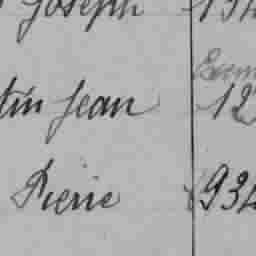 Joseph 134
Exem
tin Jean 12
Pierre 934